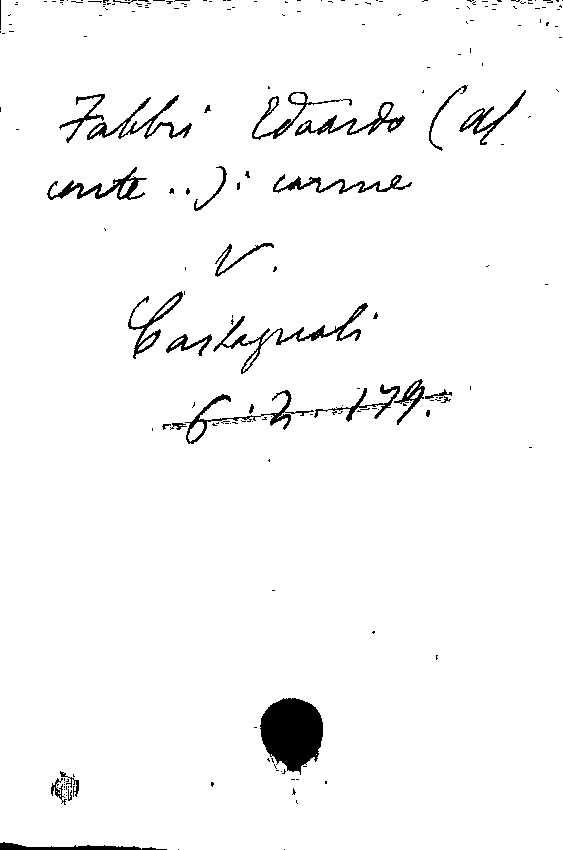 Fabbri Edoardo (al
conte ..): carme
V.
Castagnoli
6. 2. 179.